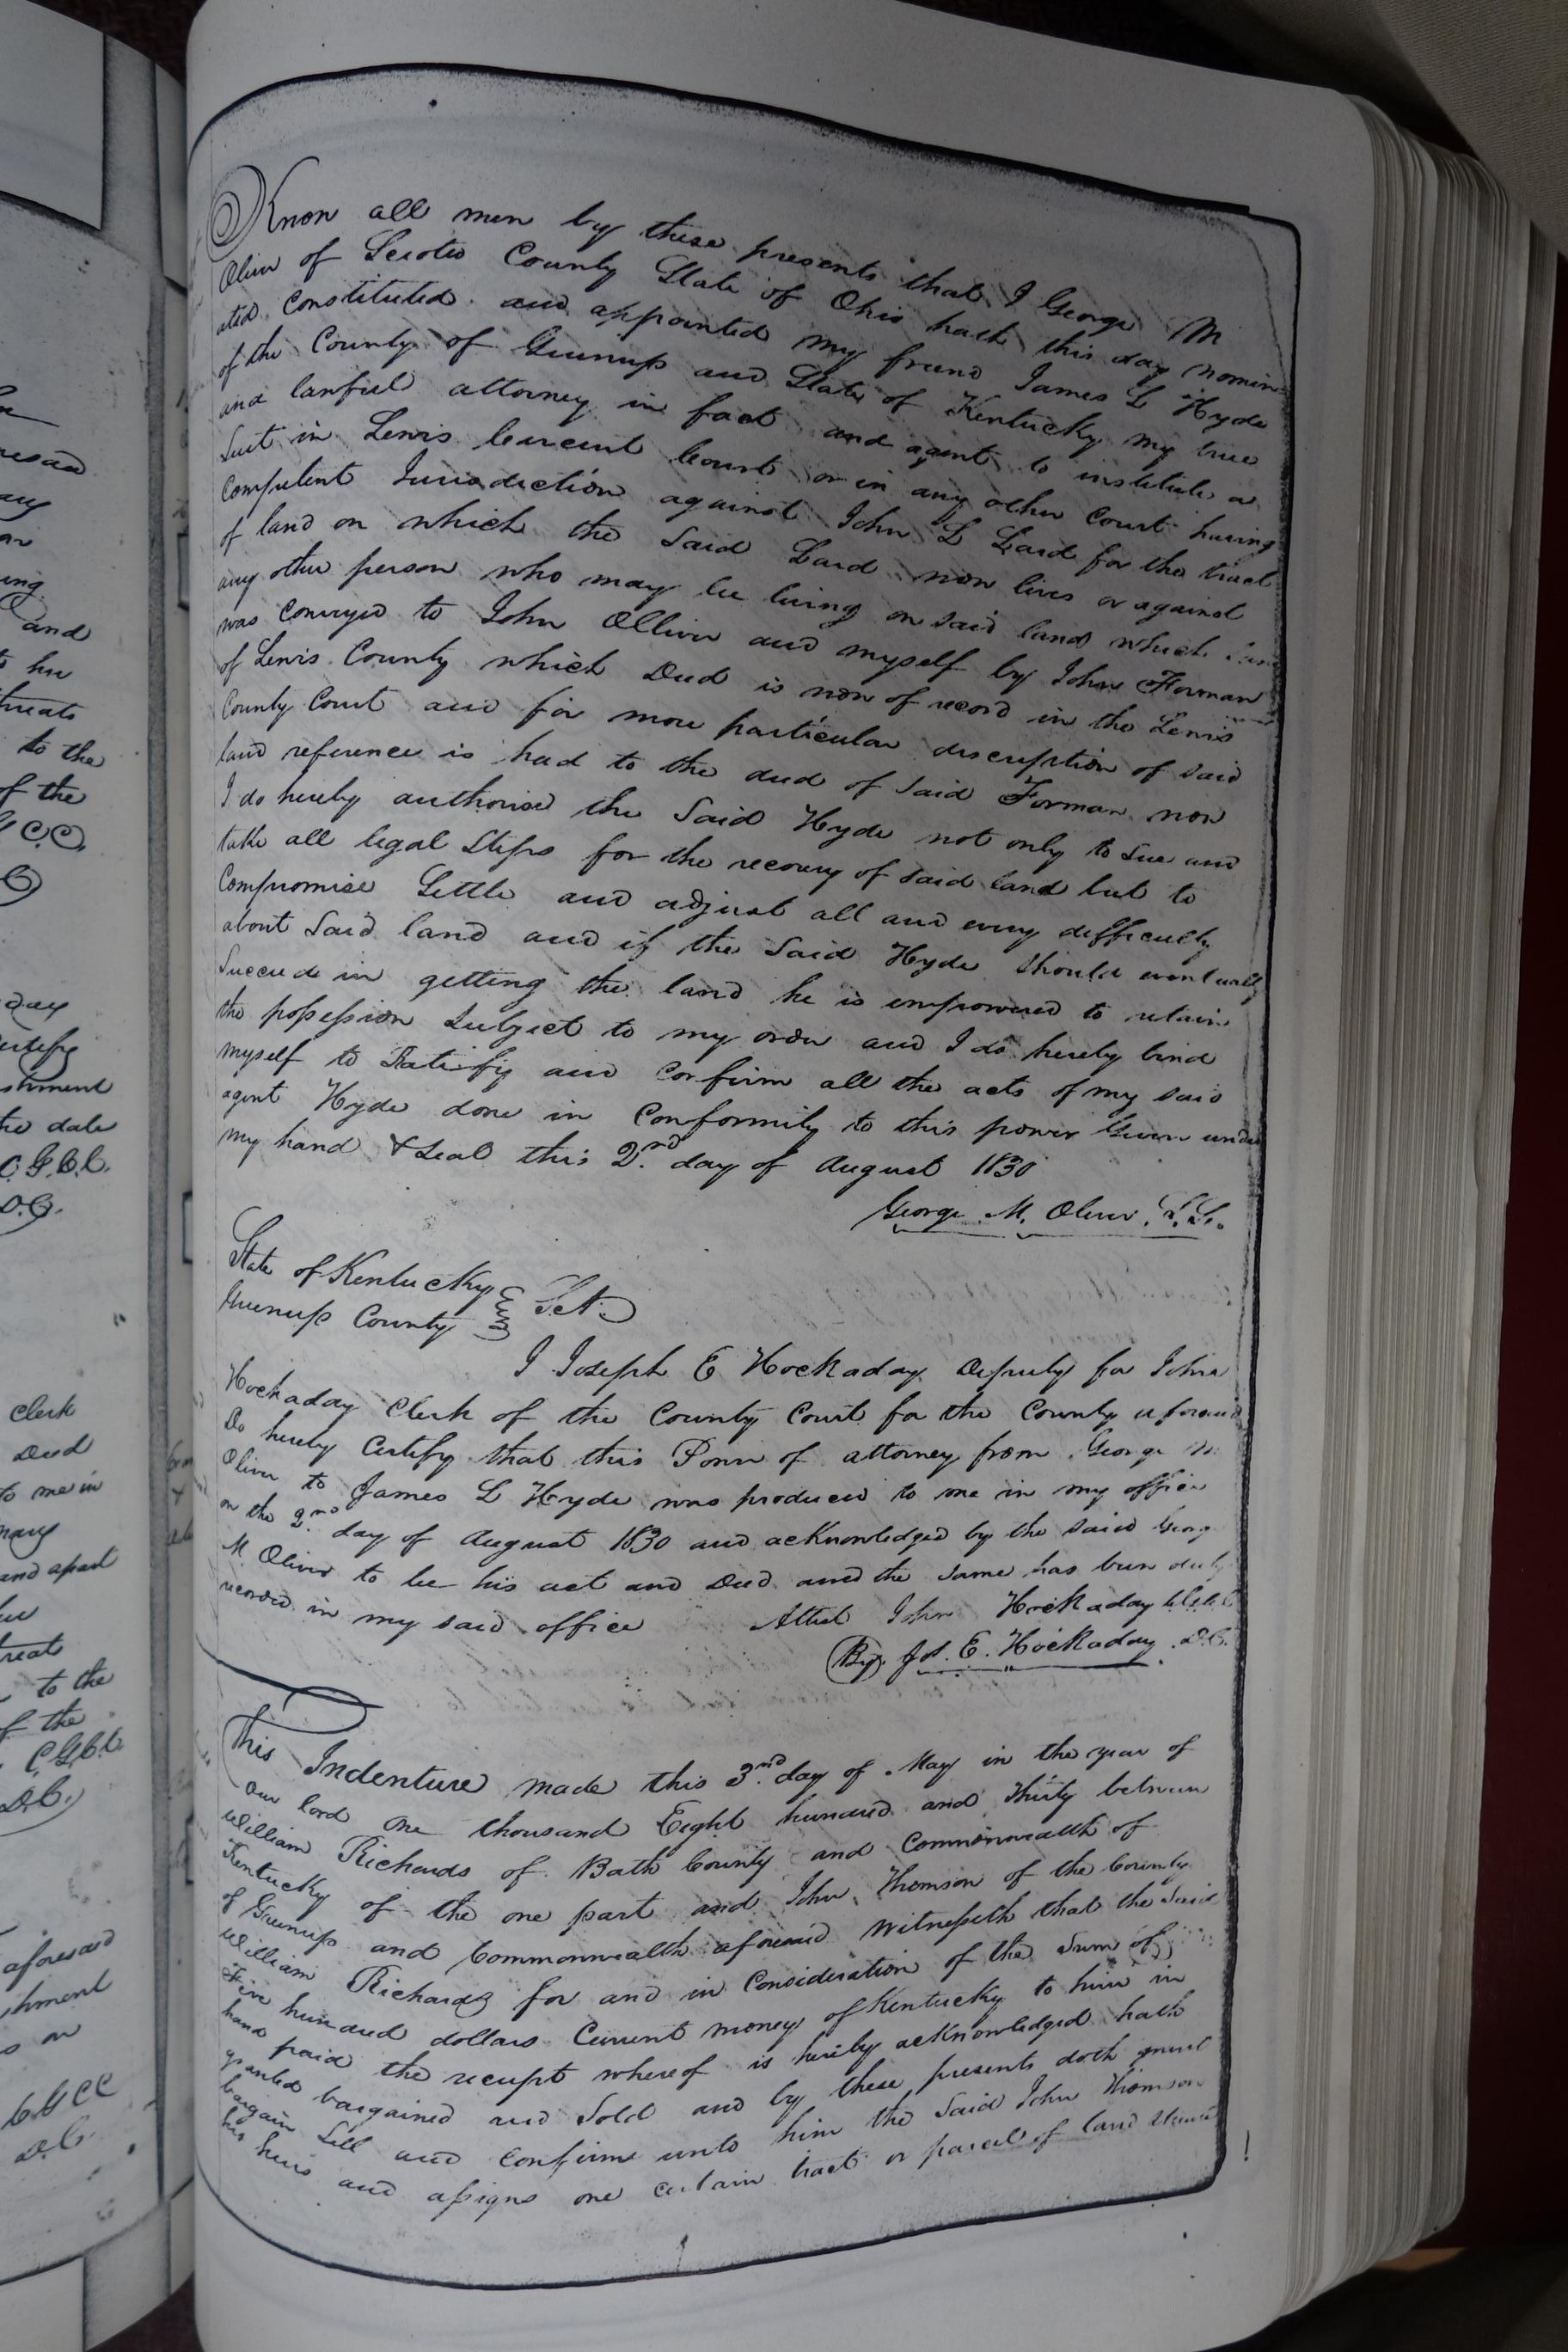 Know all men by these presents that I George M
Oliver of Scioto County State of Ohio hath this day nomin-
ated constituted and appointed my friend James L Hyde
of the County of Greenup and State of Kentucky my true
and lawful attorney in fact and agent to institute a
Suit in Lewis Circuit Court or in any other Court having
Competent Jurisdiction against John L Laird for the tract
of land on which the Said Laird now lives or against
any other person who may be living on said land which land
was conveyed to John Olliver and myself by John Forman
of Lewis County which Deed is now of record in the Lewis
County Court and for more particular description of said
land reference is had to the deed of Said Forman now
I do hereby authorise the Said Hyde not only to Sue and
take all legal Steps for the recovery of said land but to
Compromise Settle and adjust all and every difficulty
about Said land and if the Said Hyde should eventually
Succeede in getting the land he is empowered to retain
the possession Subject to my order and I do hereby bind
myself to Ratify and Confirm all the acts of my said
agent Hyde done in Conformity to this power Given under
my hand & Seal this 2.nd day of August 1830
George M. Oliver. L.S.
State of Kentucky
Greenup County Sct.
I Joseph E Hockaday Deputy for John
Hockaday Clerk of the County Court for the County aforesaid
Do hereby Certify that this Power of attorney from George M
Oliver to James L Hyde was produced to me in my office
on the 2.nd day of August 1830 and acknowledged by the said Georg
M. Oliver to be his act and Deed and the Same has been duly
recorded in my said office Attest John Hockaday
By Jos. E. Hockaday. D.C.
This Indenture made this 3.nd day of May in the year of
our lord one thousand Eight hundred and thirty between
William Richards of Bath County and Commonwealth of
Kentucky of the one part and John Thomson of the County
of Greenup and Commonwealth aforesaid Witnesseth that the Said
William Richards for and in Consideration of the Sum of
Five hundred dollars Current money of Kentucky to him in
hand paid the receipt whereof is hereby acknowledged hath
granted bargained and Sold and by these presents doth grant
bargain Sell and confirm unto him the Said John Thomson
his heirs and assigns one certain tract or parcel of land
and
to the
of the
day
the date
D.C.
clerk
Deed
to me in
and apart
to the
of the
D.C.
aforesaid
D.C.